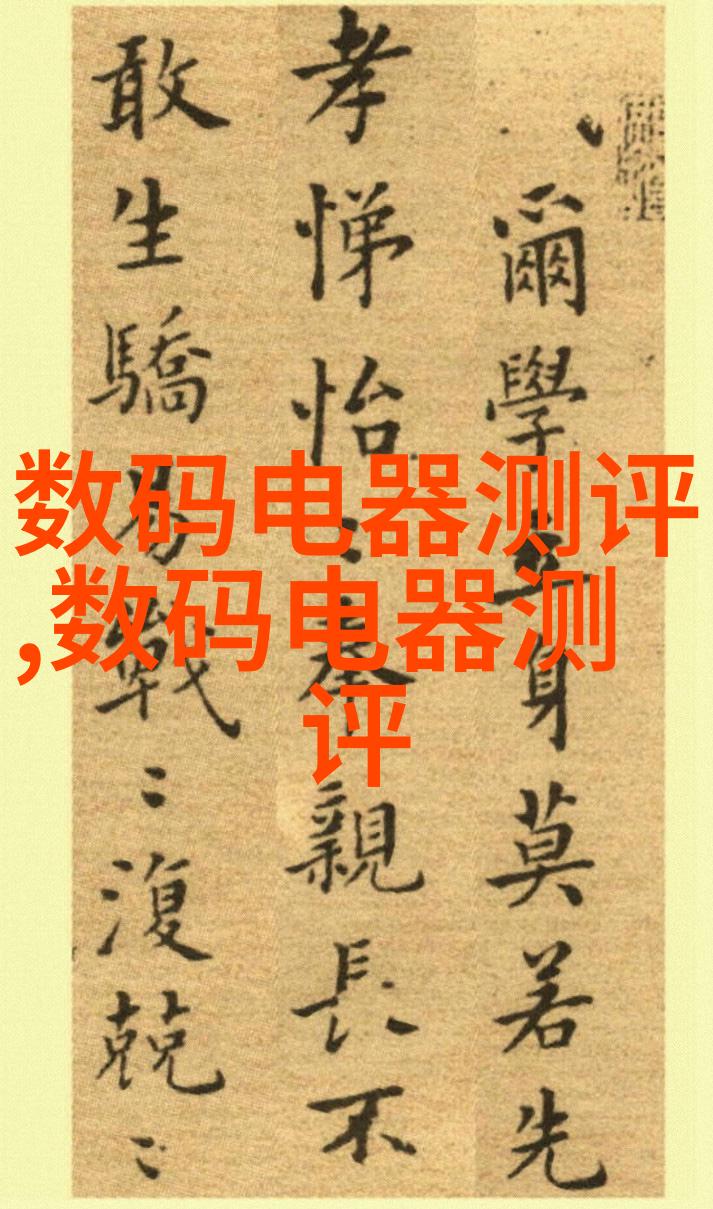 数码电器测评
,数码电器测
评
爾學立身莫若先
孝悌怡〻奉親長不
敢生驕易戰〻復兢〻